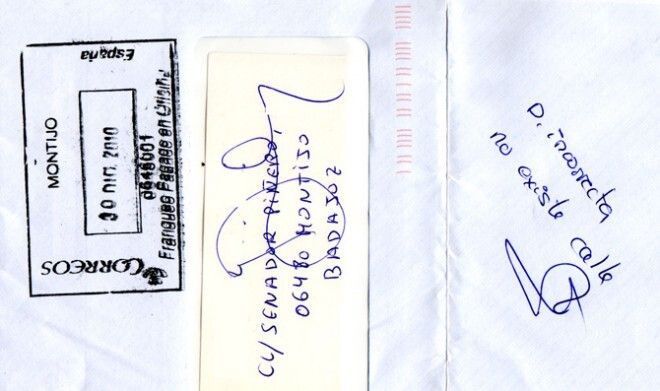 CORREOS España
MONTIJO
30 DIC. 2010
0648001
Franqueo Pagado en Oficina
C/ SENADOR PIÑERO,
06480 MONTIJO
BADAJOZ
D. incorrecta
no existe calle